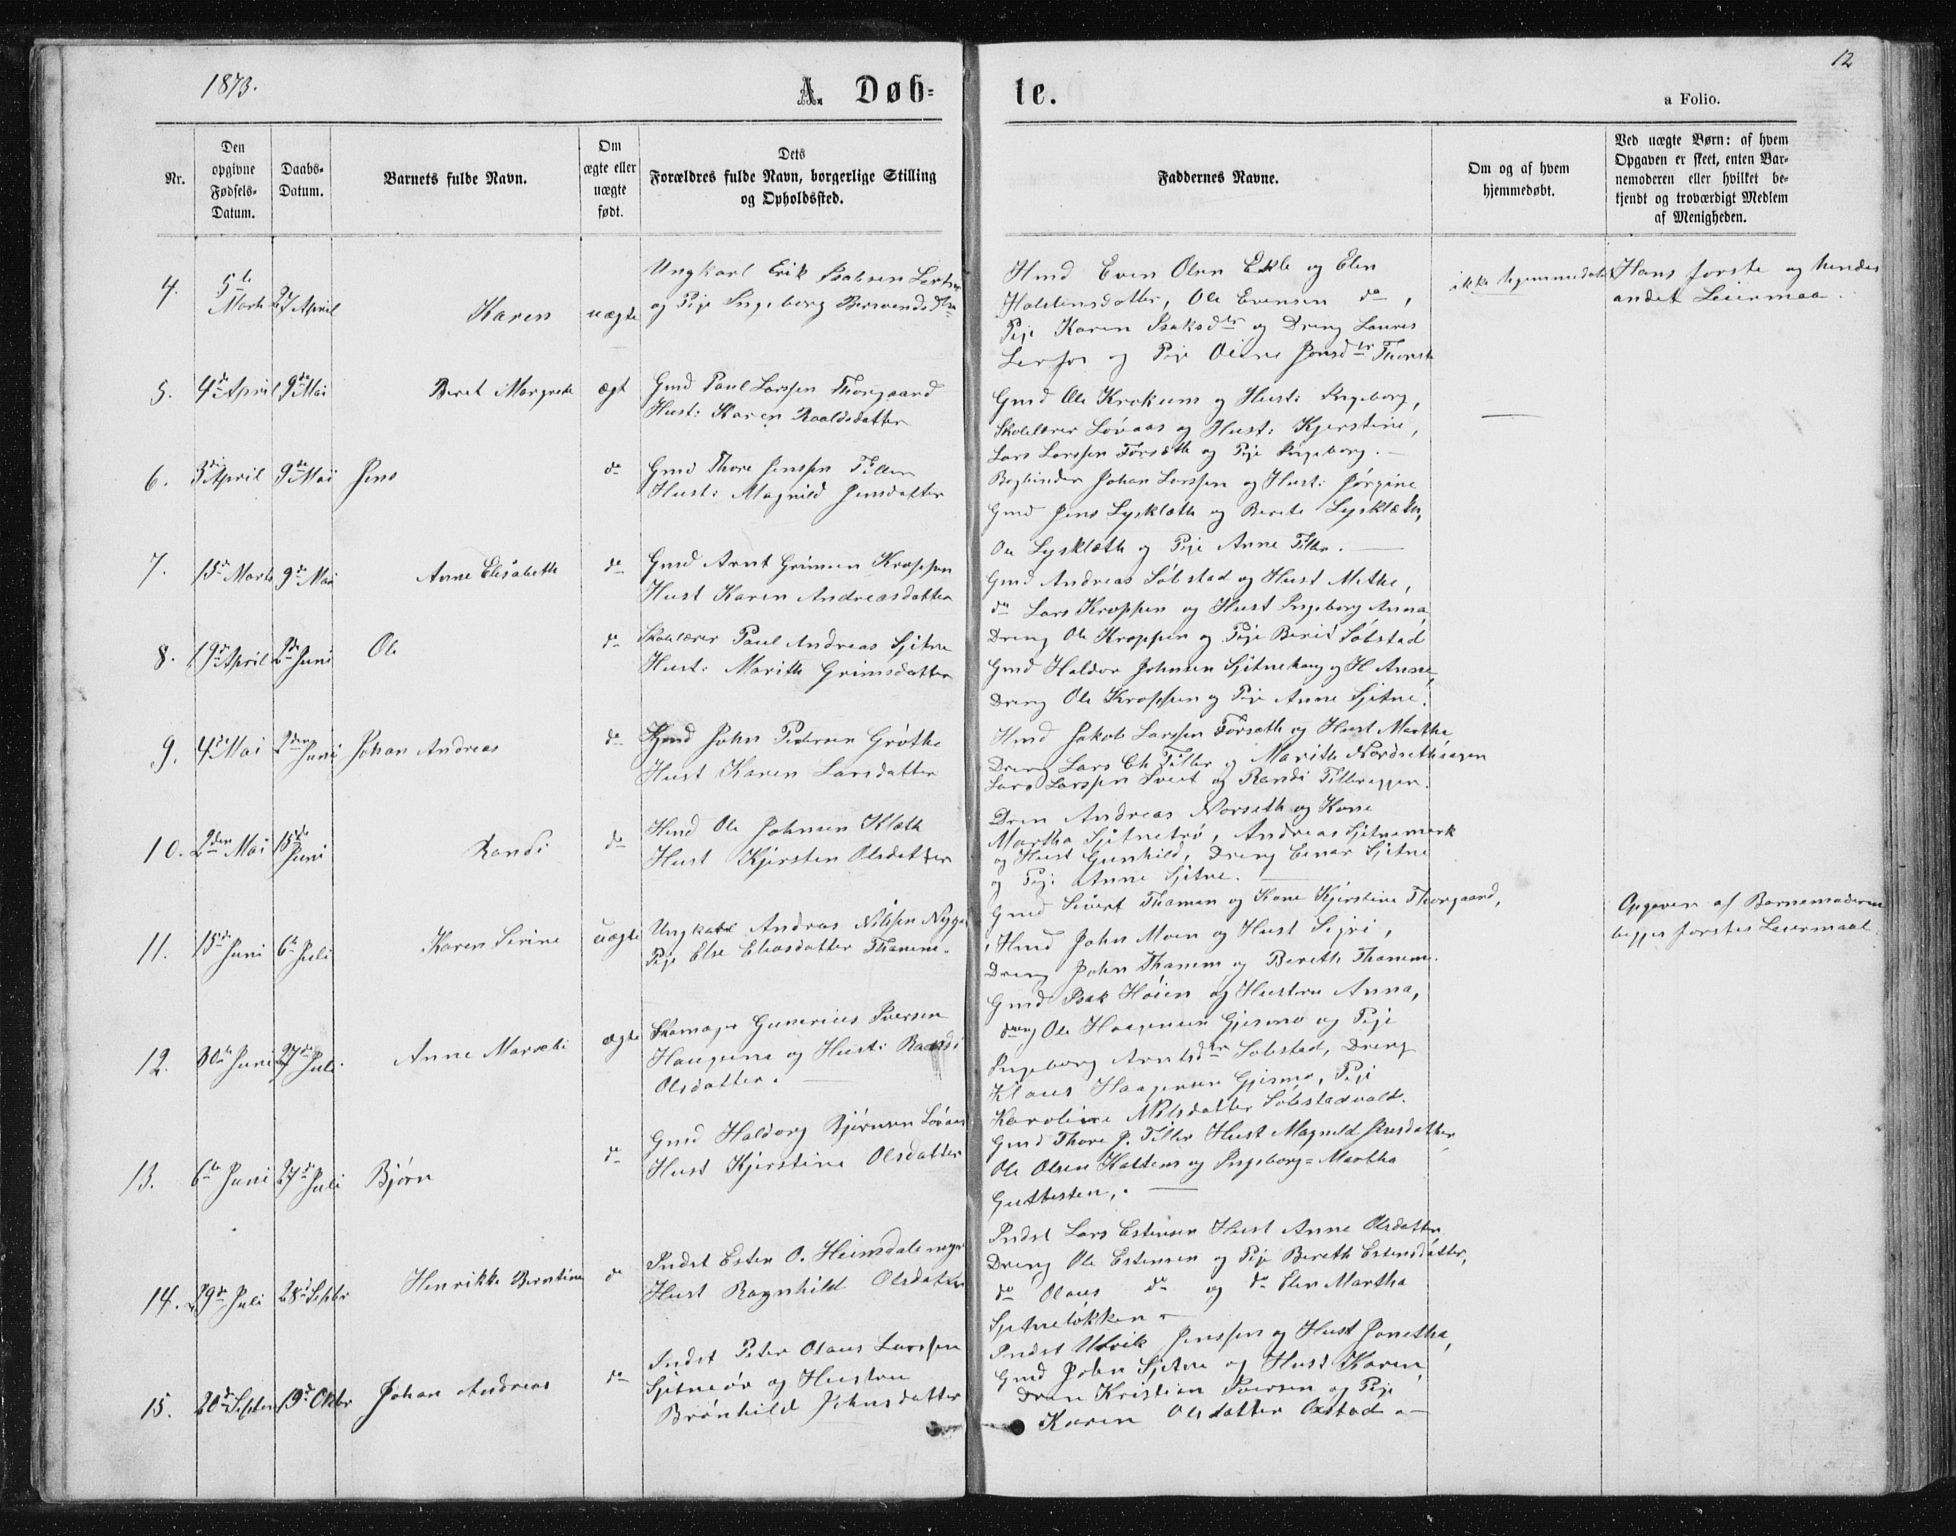 1873.
A. Døb-
te.
12
a Folio.
Nr.
Den opgivne Fødsels-Datum.
Daabs-Datum.
Barnets fulde Navn.
Om ægte eller uægte født.
Dets Forældres fulde Navn, borgerlige Stilling og Opholdssted.
Faddernes Navne.
Om og af hvem hjemmedøbt.
Ved uægte Børn: af hvem Opgaven er skeet, enten Barnemoderen eller hvilket bekjendt og troværdigt Medlem af Menigheden.
4. 5te Marts 27 April Karen uægte
Ungkarl Erik Isaksen
og Pige Ingeborg
Hmd Even Olsen Ekle og Elen
Halstensdatter, Ole Evensen do,
Pige Karen Isaksdtr og Dreng Laures
Lerfos og Pige Jonsdtr
ikke hjemmedøbt
Hans første og hendes
andet Leiermaal.
5. 4de April 9de Mai Beret Margrete ægt
Gmd Paul Larssen Thorgaard
Hust: Karen Roaldsdatter
Gmd Ole Krokum og Hust: Ingeborg,
Skolelærer Løvaas og Hust: Kjerstine,
Lars Larssen Forsæth og Pige Ingeborg. —
6. 3die April 9de Mai Jens do
Gmd Thore Jenssen Tiller
Hust: Magnild Jensdatter
Bogbinder Johan Larssen og Hust: Jørgine
Gmd Jens Lysklæth og Berete Lysklæth,
Ole Lysklæth og Pige Anne Tiller. —
7. 15de Marts 9de Mai Anne Elisabeth do
Gmd Arnt Grimsen Kroppen
Hust Karen Andreasdatter
Gmd Andreas Søbstad og Hust Methe,
do Lars Kroppen og Hust Ingeborg Anna,
Dreng Ole Kroppen og Pige Berit Søbstad
8. 19de April 2den Juni Ole do
Skolelærer Paul Andreas Sjetne
Hust: Marith Grimsdatter
Gmd Haldor Johnsen Sjetnehaug og H Anne,
Dreng Ole Kroppen og Pige Anne Sjetne.
9. 4de Mai 2den Juni Johan Andreas do
Hmd John Pedersen Grøthe
Hust Karen Larsdatter
Hmd Jakob Larssen Forsæth og Hust Marthe
Dreng Lars Ch Tiller og Marith Nordsethhagen
Lars Larssen og Randi
10. 2den Mai 15de Juni Randi do
Hmd Ole Johnsen Klæth
Hust Kjersten Olsdatter
Dren Andreas Norseth og Kone
Martha Sjetnetrø, Andreas Sjetnemark
og Hust Gunhild, Dreng Einar Sjetne
og Pige Anne Sjetne. —
11. 15de Juni 6te Juli Karen Serine uægte
Ungkarl Andreas Nilssen
Pige Else Eliasdatter Thamme.
Gmd Sivert Thamem og Kone Kjerstine Thorgaard,
Hmd John Moen og Hust Sigri,
Dreng John Thamem og Bereth Thamem.
Opgaven af Barnemoderen
begges førstes Leiermaal
12. 30te Juni 27de Juli Anne Marselie ægte
Skomager Gunerius Iversen
Haugene og Hust: Randi
Olsdatter. —
Gmd Isak Høien og Hustru Anna,
dreng Ole Haagensen Gjesmo og Pige
Ingeborg Arntsdtr Søbstad, Dreng
Klaus Haagensen Gjesmo, Pige
Karoline Nilsdatter Søbstadvald.
13. 6te Juni 27de Juli Bjørn do
Gmd Haldorg Bjørnsen Løvaas
Hust Kjerstine Olsdatter
Gmd Thore J. Tiller Hust Magnild Jensdatter,
Ole Olsen og Ingeborg-Martha
—
14. 29de Juli 28de Septbr Henrikke Berntine do
Indst Esten O. Heimdalsmyr
Hust Ragnhild Olsdatter
Indst Lars Estensen Hust Anne Olsdatter,
Dreng Ole Estensen og Pige Bereth Estensdatter,
do Olaus do og do Elen Martha
Sjetneløkken —
15. 20de Septbr 19de Oktbr Johan Andreas do
Indst Peter Olaus Larssen
Sjetneør og Hustru
Brønhild Johnsdatter
Indst Ulrik Jenssen og Hust Jonetha,
Gmd John Sjetne og Hust Karen,
Dren Kristian Iversen og Pige
Karen Olsdatter —